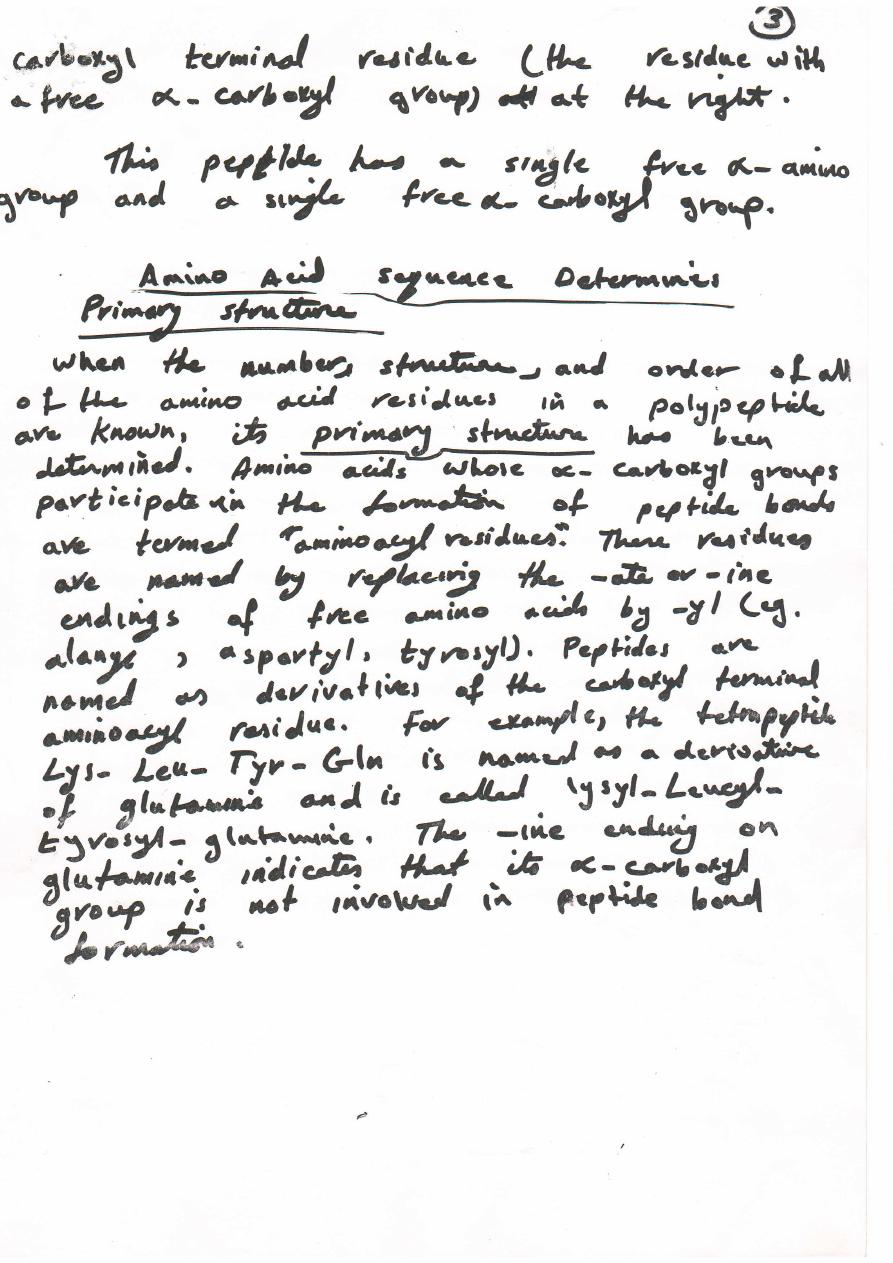 3
carboxyl terminal residue (the residue with
a free α- carboxyl group) at the right.
This peptide has a single free α- amino
group and a single free α- carboxyl group.
Amino Acid sequence Determines
Primary structure
when the number, structure, and order of all
of the amino acid residues in a polypeptide
are known, its primary structure has been
determined. Amino acids whose α- carboxyl groups
participate in the formation of peptide bonds
are termed "aminoacyl residues". These residues
are named by replacing the -ate or -ine
endings of free amino acids by -yl (eg.
alanyl, aspartyl, tyrosyl). Peptides are
named as derivatives of the carboxyl terminal
aminoacyl residue. For example, the tetrapeptide
Lys- Leu- Tyr- Gln is named as a derivative
of glutamine and is called lysyl- Leucyl-
tyrosyl- glutamine. The -ine ending on
glutamine indicates that its α-carboxyl
group is not involved in peptide bond
formation.